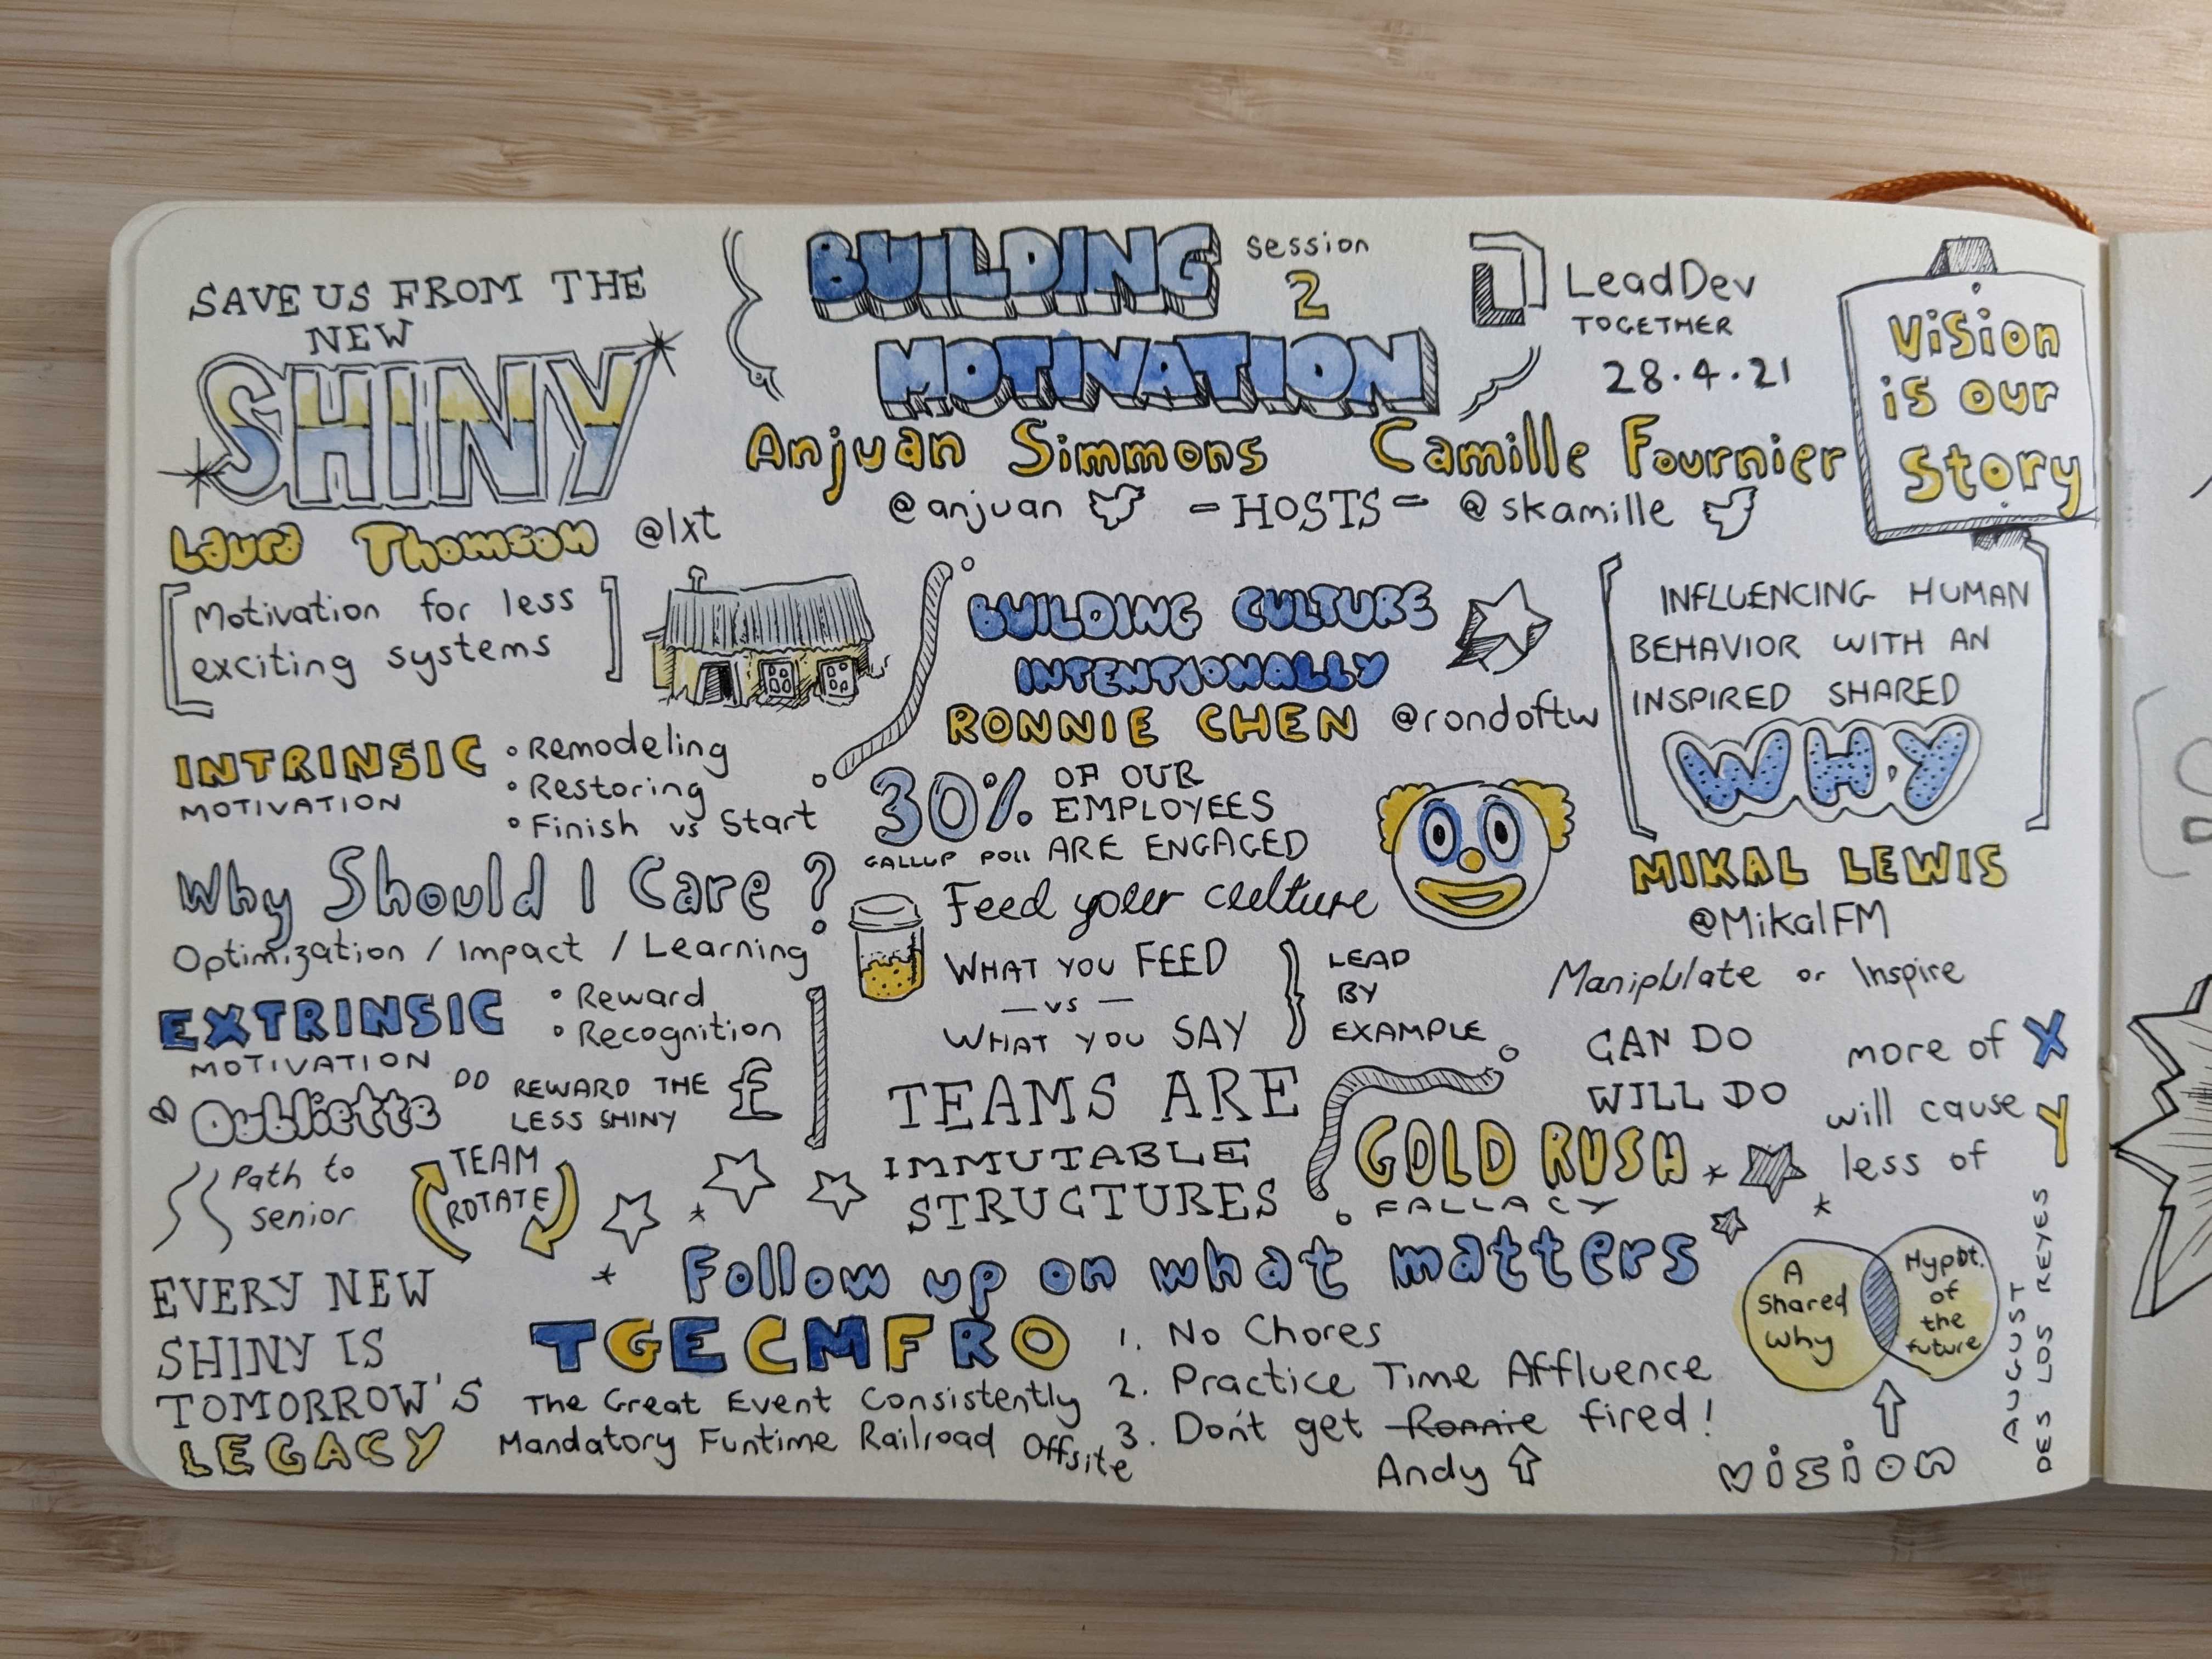 BUILDING
MOTIVATION
session
2
LeadDev
TOGETHER
28.4.21
Anjuan Simmons Camille Fournier
@anjuan - HOSTS - @skamille
SAVE US FROM THE
NEW
SHINY
Laura Thomson @lxt
Motivation for less
exciting systems
INTRINSIC
MOTIVATION
• Remodeling
• Restoring
• Finish vs Start
Why Should I Care?
Optimization / Impact / Learning
EXTRINSIC
MOTIVATION
• Reward
• Recognition
Oubliette
REWARD THE
LESS SHINY
£
Path to
senior
TEAM
ROTATE
EVERY NEW
SHINY IS
TOMORROW'S
LEGACY
BUILDING CULTURE
INTENTIONALLY
RONNIE CHEN @rondoftw
30% OF OUR
EMPLOYEES
ARE ENGAGED
GALLUP POll
Feed your culture
WHAT YOU FEED
— vs —
WHAT YOU SAY
LEAD
BY
EXAMPLE
TEAMS ARE
IMMUTABLE
STRUCTURES
GOLD RUSH
FALLACY
Follow up on what matters
TGECMFRO
The Great Event Consistently
Mandatory Funtime Railroad Offsite
1. No Chores
2. Practice Time Affluence
3. Don't get Ronnie fired!
Andy
Vision
is our
Story
INFLUENCING HUMAN
BEHAVIOR WITH AN
INSPIRED SHARED
WHY
MIKAL LEWIS
@MikalFM
Manipulate or Inspire
CAN DO
WILL DO
more of X
will cause
less of Y
A
Shared
Why
Hypot.
of
the
future
vision
AUGUST
DES LOS REYES